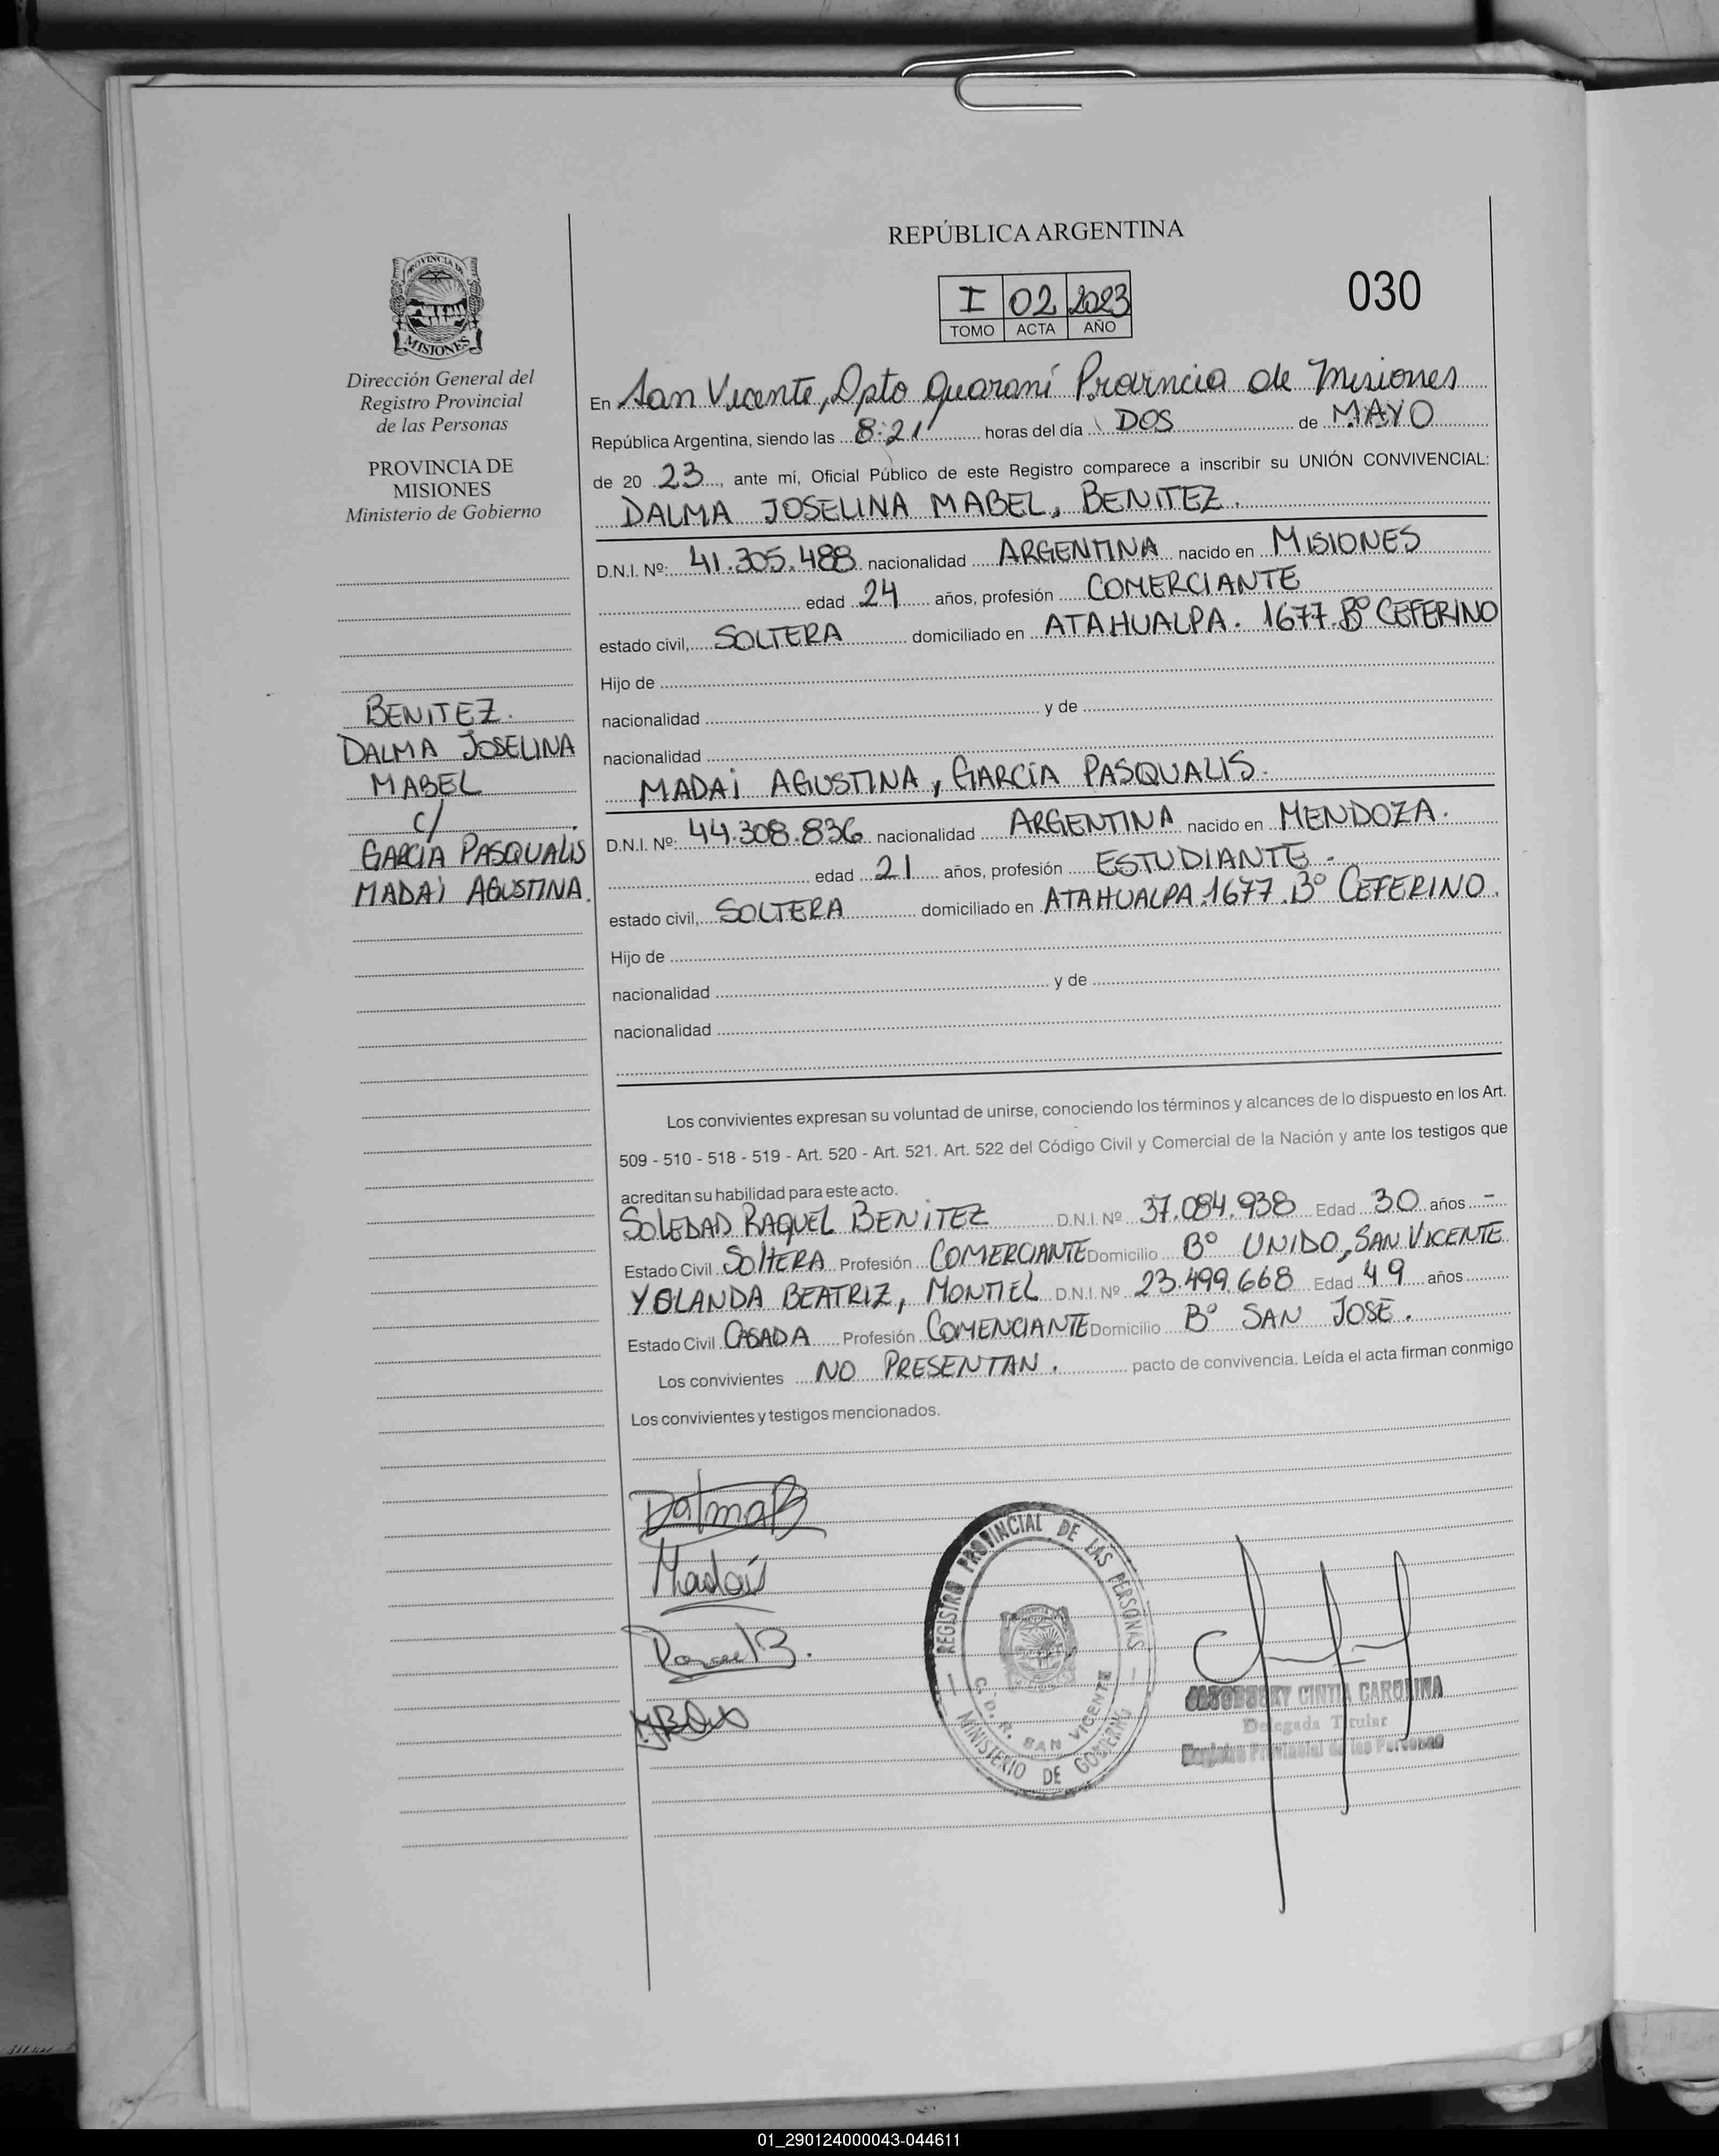 REPÚBLICA ARGENTINA
I 02 2023
TOMO ACTA AÑO
030
PROVINCIA DE
MISIONES
Dirección General del
Registro Provincial
de las Personas
PROVINCIA DE
MISIONES
Ministerio de Gobierno
BENITEZ.
DALMA JOSELINA
MABEL
c/
GARCIA PASQUALIS
MADAI AGUSTINA.
En San Vicente, Dpto Guaraní Provincia de Misiones
República Argentina, siendo las 8:21 horas del día DOS de MAYO
de 20 23, ante mí, Oficial Público de este Registro comparece a inscribir su UNIÓN CONVIVENCIAL:
DALMA JOSELINA MABEL, BENITEZ.
D.N.I. Nº: 41.305.488 nacionalidad ARGENTINA nacido en MISIONES
edad 24 años, profesión COMERCIANTE
estado civil, SOLTERA domiciliado en ATAHUALPA. 1677. Bº CEFERINO
Hijo de
nacionalidad y de
nacionalidad
MADAI AGUSTINA, GARCIA PASQUALIS.
D.N.I. Nº: 44.308.836 nacionalidad ARGENTINA nacido en MENDOZA.
edad 21 años, profesión ESTUDIANTE -
estado civil, SOLTERA domiciliado en ATAHUALPA.1677.Bº CEFERINO.
Hijo de
nacionalidad y de
nacionalidad
Los convivientes expresan su voluntad de unirse, conociendo los términos y alcances de lo dispuesto en los Art.
509 - 510 - 518 - 519 - Art. 520 - Art. 521. Art. 522 del Código Civil y Comercial de la Nación y ante los testigos que
acreditan su habilidad para este acto.
SOLEDAD RAQUEL BENITEZ D.N.I. Nº 37.084.938 Edad 30 años -
Estado Civil SOLTERA Profesión COMERCIANTE Domicilio Bº UNIDO, SAN VICENTE
YOLANDA BEATRIZ, MONTIEL D.N.I. Nº 23.499.668 Edad 49 años
Estado Civil CASADA Profesión COMENCIANTE Domicilio Bº SAN JOSE.
Los convivientes NO PRESENTAN. pacto de convivencia. Leída el acta firman conmigo
Los convivientes y testigos mencionados.
DalmaB
Madai
REGISTRO PROVINCIAL DE LAS PERSONAS
C.D.R. SAN VICENTE
MINISTERIO DE GOBIERNO
CINTIA CAROLINA
Delegada Titular
Registro Provincial de las Personas
01_290124000043-044611